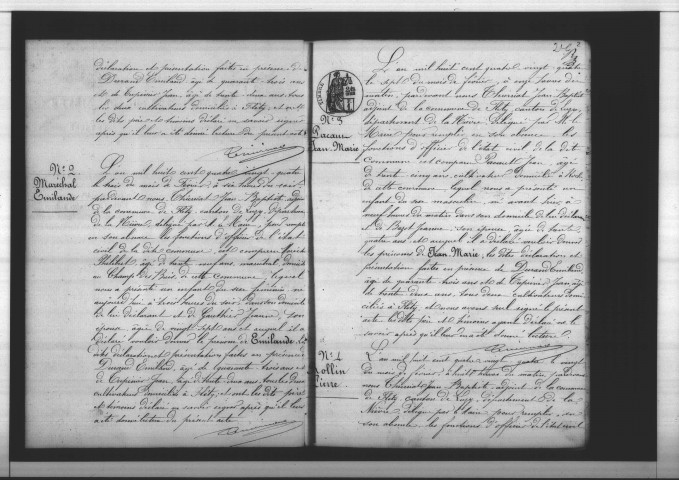 déclaration et présentation faites en présence de
Durand Emiland, âgé de quarante trois ans
et de Capivier Jean, âgé de trente deux ans tous
les deux cultivateurs domiciliés à Fléty, et ont
les dits père et témoins déclaré ne savoir signer
après qu'il leur a été donné lecture du présent acte
N° 2
Maréchal
Emilande
L'an mil huit cent quatre vingt quatre
le trois du mois de Février, à six heures du soir
pardevant nous Thuriat Jean Baptiste adjoint
de la commune de Fléty, canton de Luzy, département
de la Nièvre délégué par M. le Maire, pour remplir
en son absence les fonctions d'officier de l'état
civil de la dite commune, est comparu Maréchal
Philibert, âgé de trente ans, maréchal, domicilié
au Champ des Bois, de cette commune, lequel
nous a présenté un enfant du sexe féminin né
aujourd'hui à trois heures du soir dans son domicile
de lui déclarant et de Gauthier Jeanne, son
épouse, âgée de vingt sept ans et auquel il a
déclaré vouloir donner le prénom de Emilande, les
dites déclaration et présentation faites en présence
Durand Emiland, âgé de quarante trois ans et
de Capivier Jean, âgé de trente deux ans, tous les deux
cultivateurs domiciliés à Fléty, et ont les dits père
et témoins déclaré ne savoir signer après qu'il leur
a été donné lecture du présent acte
N° 3
Pacaut
Jean-Marie
L'an mil huit cent quatre vingt quatre
le sept du mois de février, à onze heures du
matin, pardevant nous Thuriat Jean Baptiste
adjoint de la commune de Fléty, canton de Luzy,
département de la Nièvre délégué par M. le
Maire pour remplir en son absence les
fonctions d'officier de l'état civil de la dite
commune est comparu Jean, âgé
de trente cinq ans, cultivateur, domicilié
de cette commune, lequel nous a présenté un
enfant du sexe masculin, né avant hier, à
onze heures du matin dans son domicile de lui déclarant
et de Jeanne, son épouse, âgée de trente
quatre ans et auquel il a déclaré vouloir donner
les prénoms de Jean Marie, les dites déclaration et
présentation faites en présence de Durand Emiland
âgé de quarante trois ans et de Capivier Jean, âgé
de trente deux ans, tous deux cultivateurs domiciliés
à Fléty et nous avons seul signé le présent
acte les dits père et témoins ayant déclaré ne le
savoir après qu'il leur en a été donné lecture.
N° 4
Rollin
Pierre
L'an mil huit cent quatre vingt quatre le vingt
du mois de février, à huit heures du matin pardevant
nous Thuriat Jean Baptiste, adjoint de la commune
de Fléty, canton de Luzy, département de la
Nièvre délégué par le Maire pour remplir en
son absence les fonctions d'officier de l'état civil